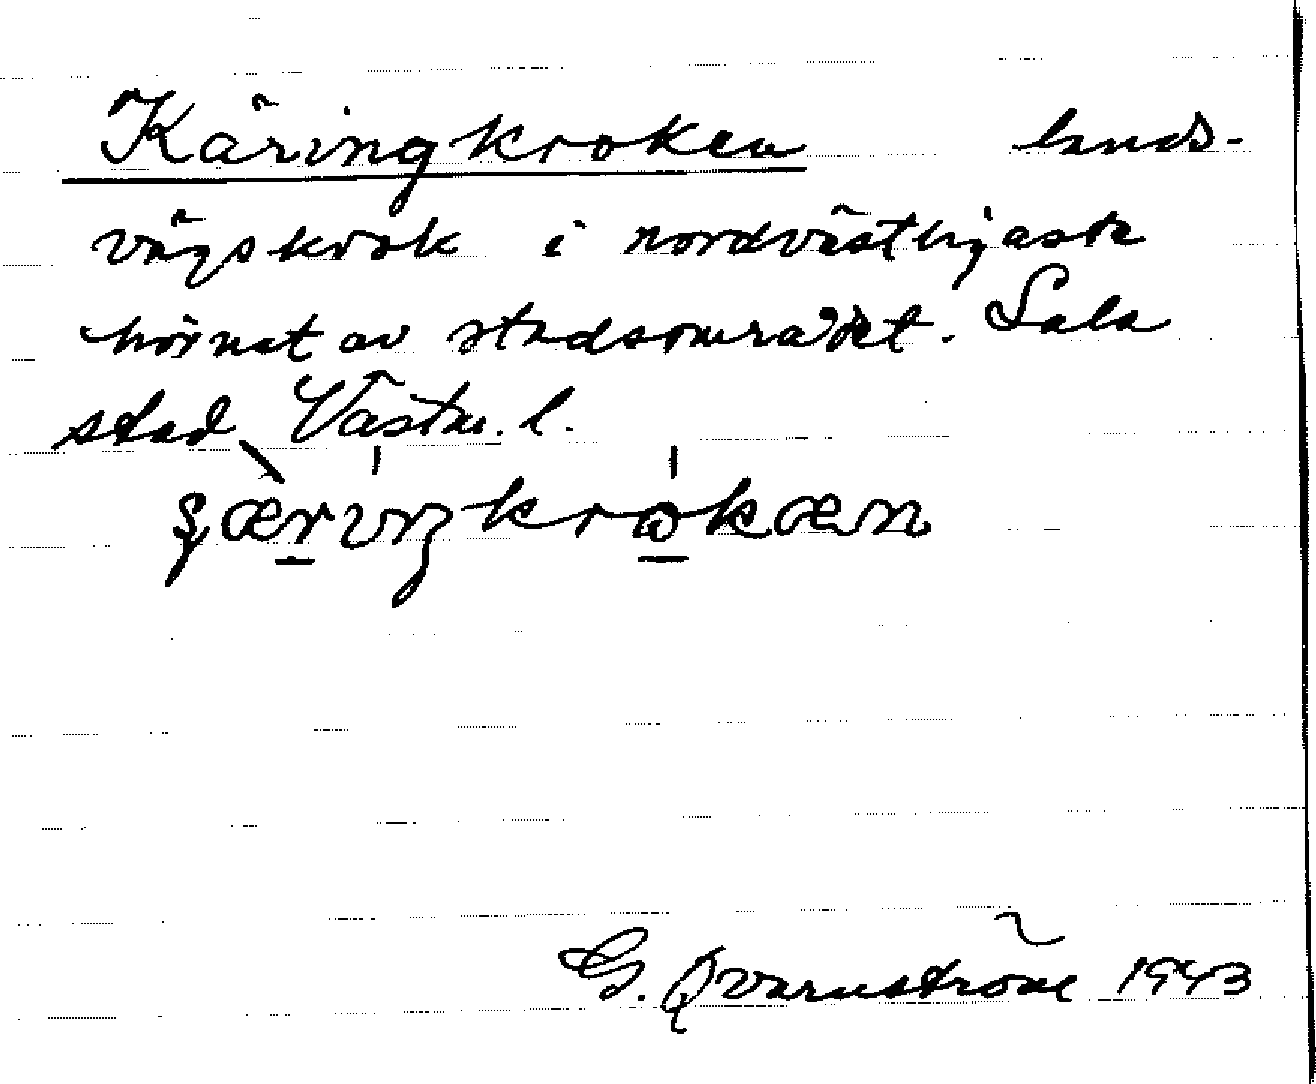 Käringkroken lands-
vägskrok i nordvästligaste
hörnet av stadsområdet. Sala
stad Västm. l.
G. Qvarnström 1943